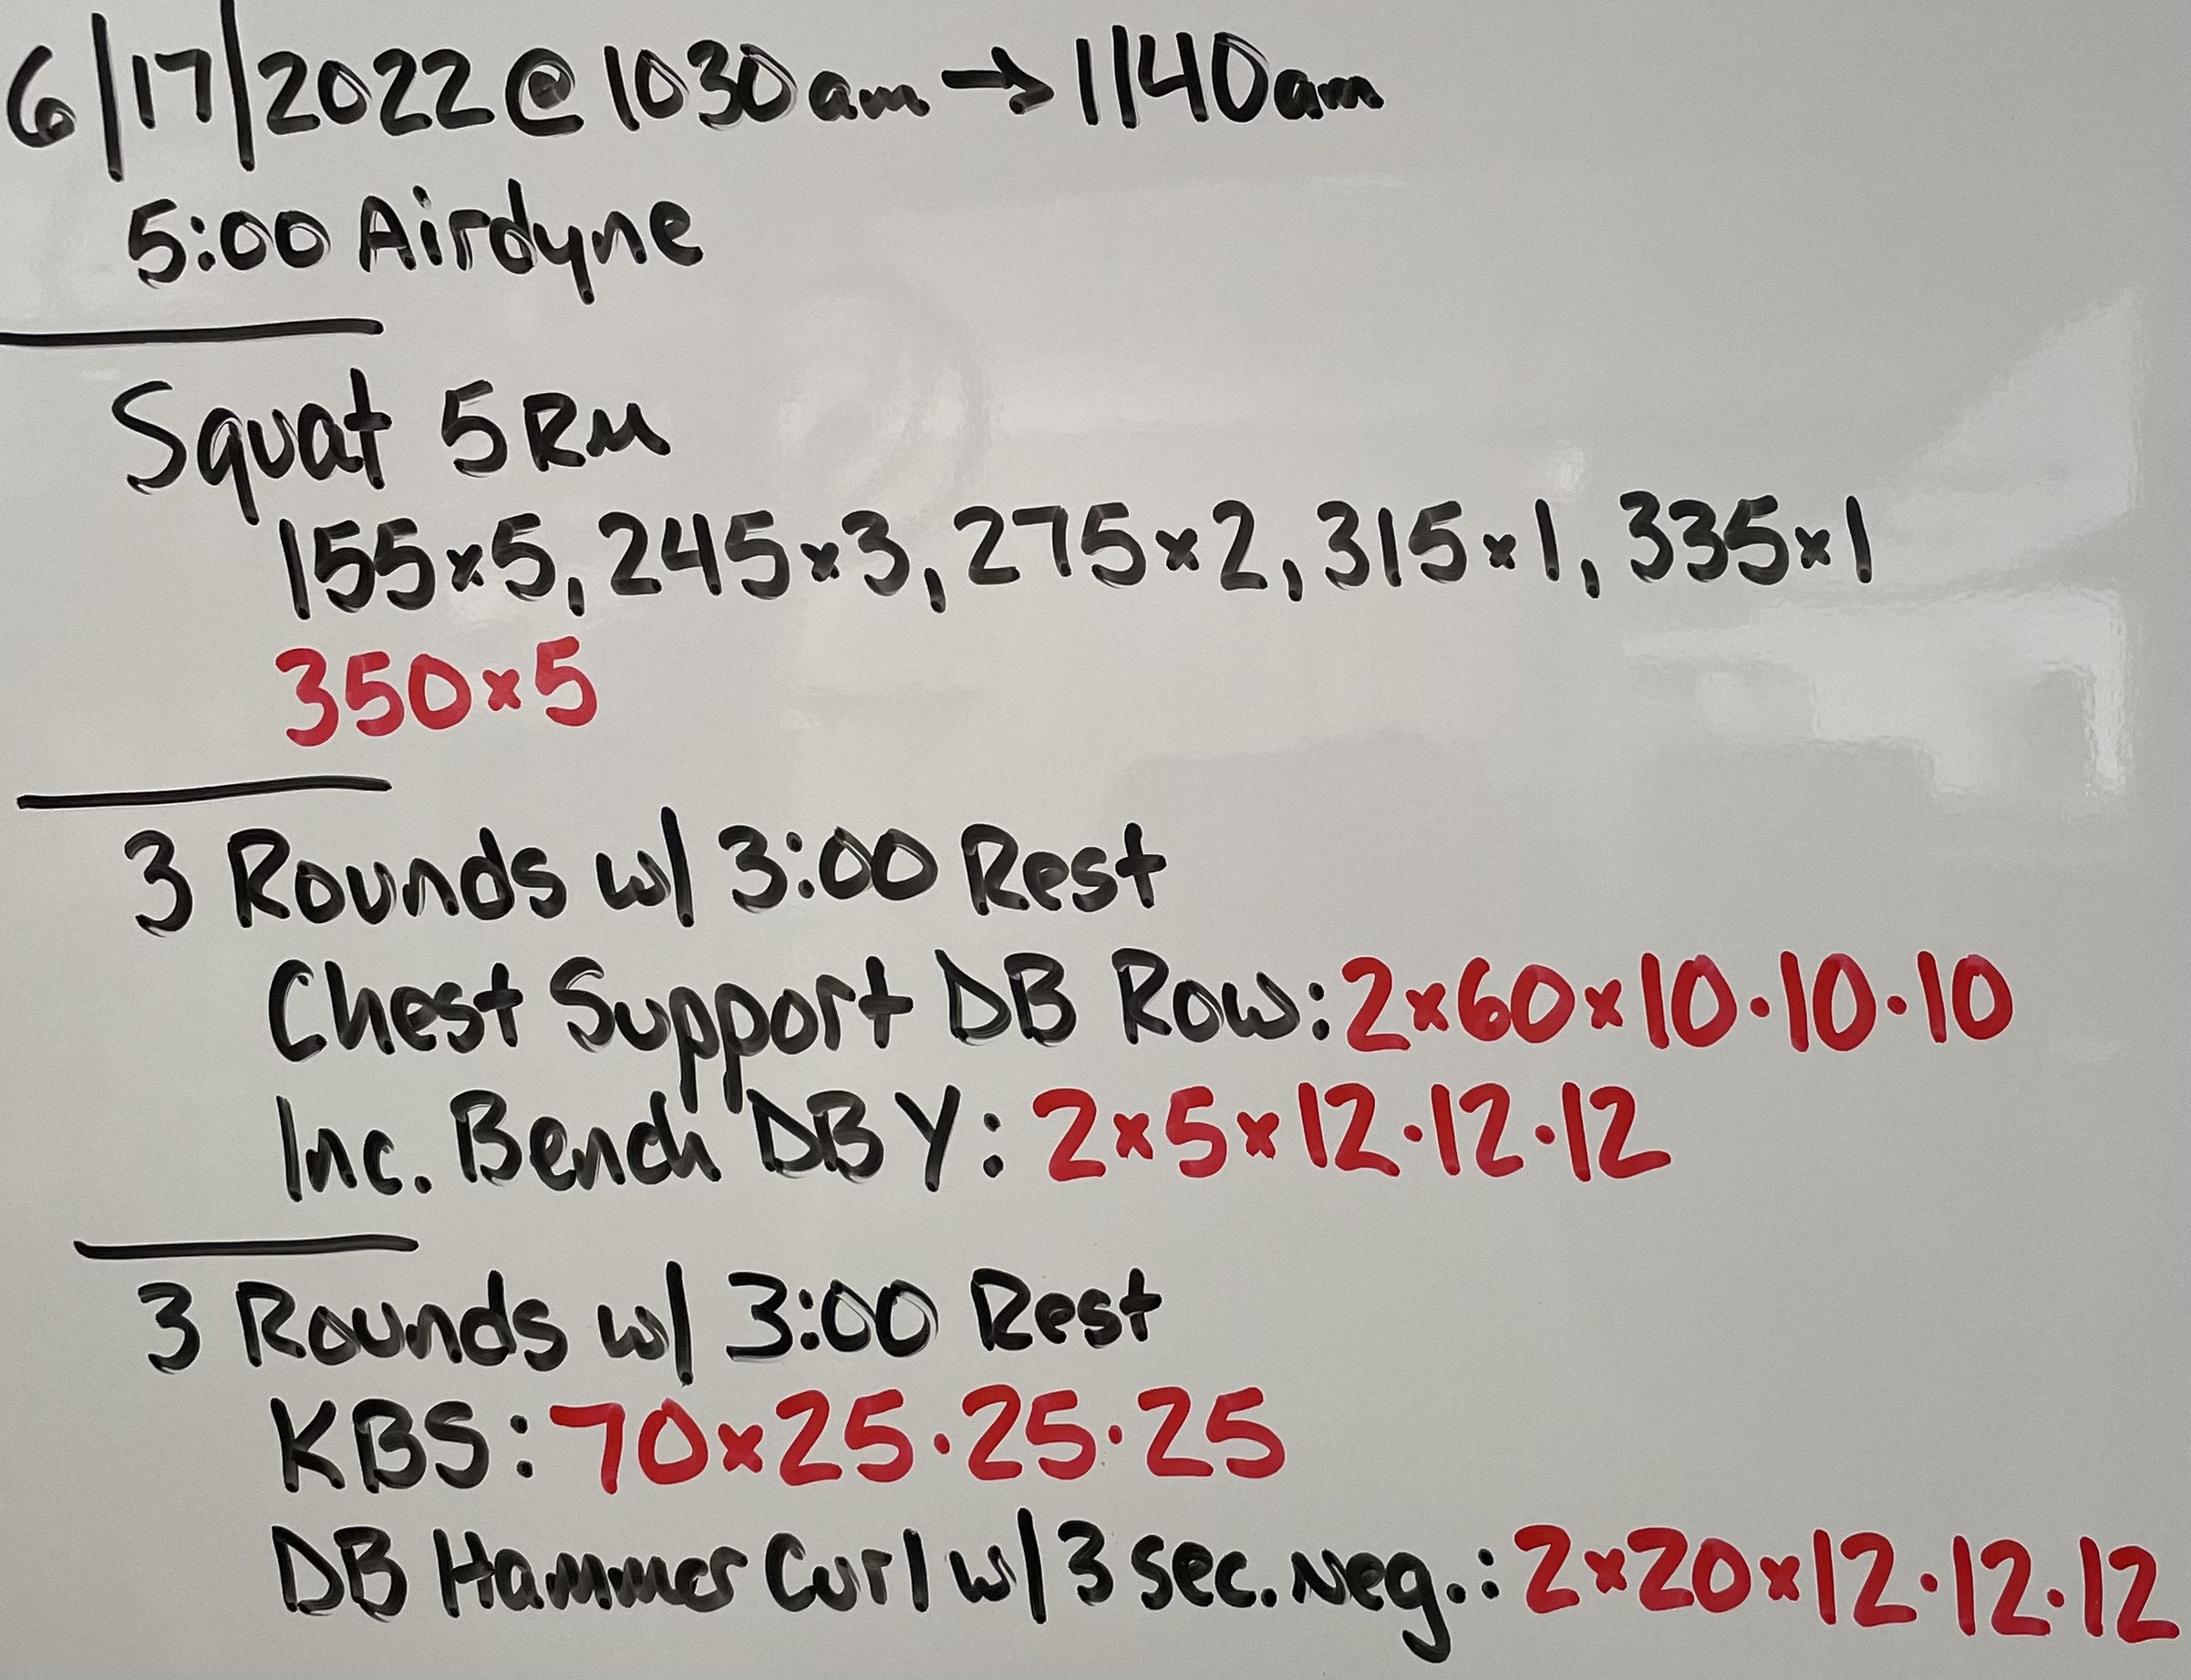 6/17/2022 @ 1030am → 1140am
5:00 Airdyne
Squat 5RM
155x5, 245x3, 275x2, 315x1, 335x1
350x5
3 Rounds w/ 3:00 Rest
Chest Support DB Row: 2x60x10·10·10
Inc. Bench DB Y: 2x5x12·12·12
3 Rounds w/ 3:00 Rest
KBS: 70x25·25·25
DB Hammer Curl w/ 3 sec. Neg.: 2x20x12·12·12